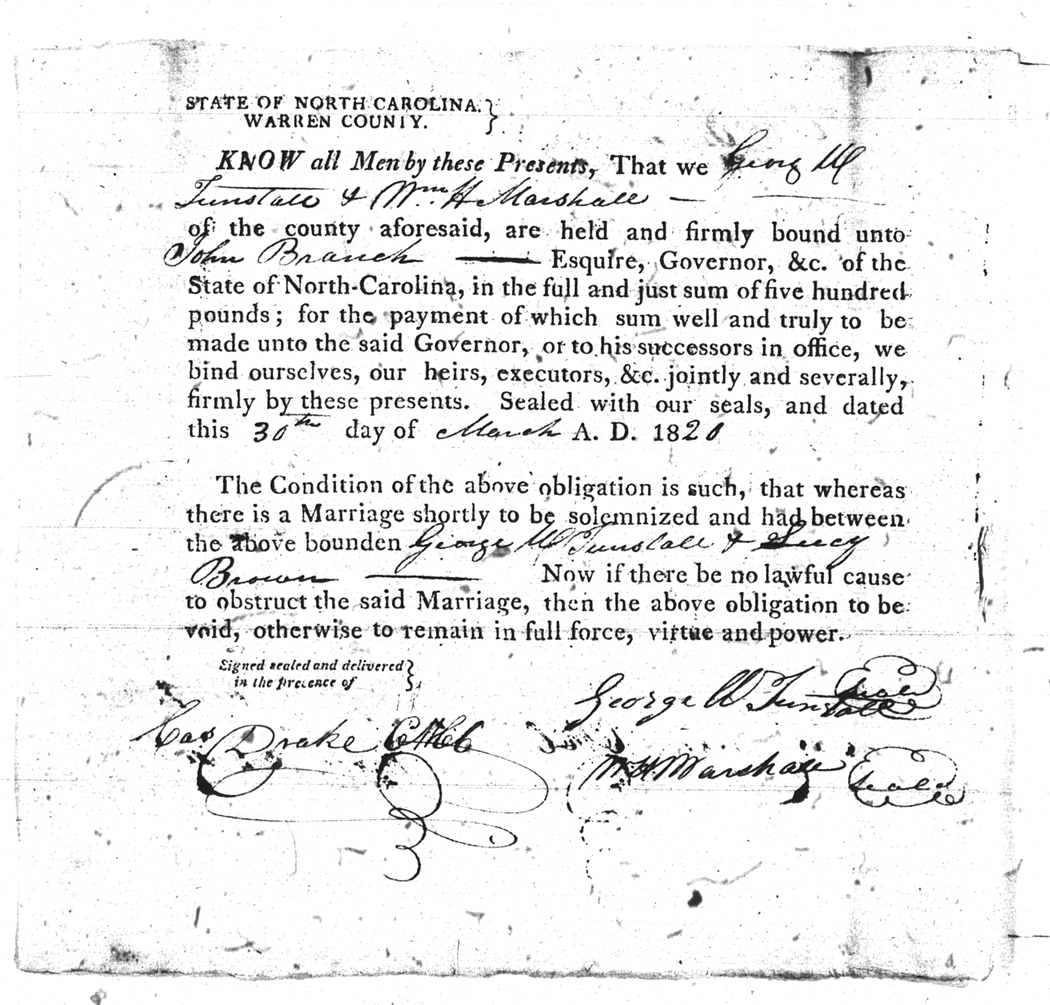 STATE OF NORTH CAROLINA.}
WARREN COUNTY.
KNOW all Men by these Presents, That we Georg W
Tunstall & Wm. H Marshall —
of the county aforesaid, are held and firmly bound unto
John Branch — Esquire, Governor, &c. of the
State of North-Carolina, in the full and just sum of five hundred
pounds; for the payment of which sum well and truly to be
made unto the said Governor, or to his successors in office, we
bind ourselves, our heirs, executors, &c. jointly and severally,
firmly by these presents. Sealed with our seals, and dated
this 30th day of March A. D. 1820
The Condition of the above obligation is such, that whereas
there is a Marriage shortly to be solemnized and had between
the above bounden George W Tunstall & Lucy
Brown — Now if there be no lawful cause
to obstruct the said Marriage, then the above obligation to be
void, otherwise to remain in full force, virtue and power.
Signed sealed and delivered}
in the presence of
George W Tunstall seal
Cas Drake
W H Marshall seal